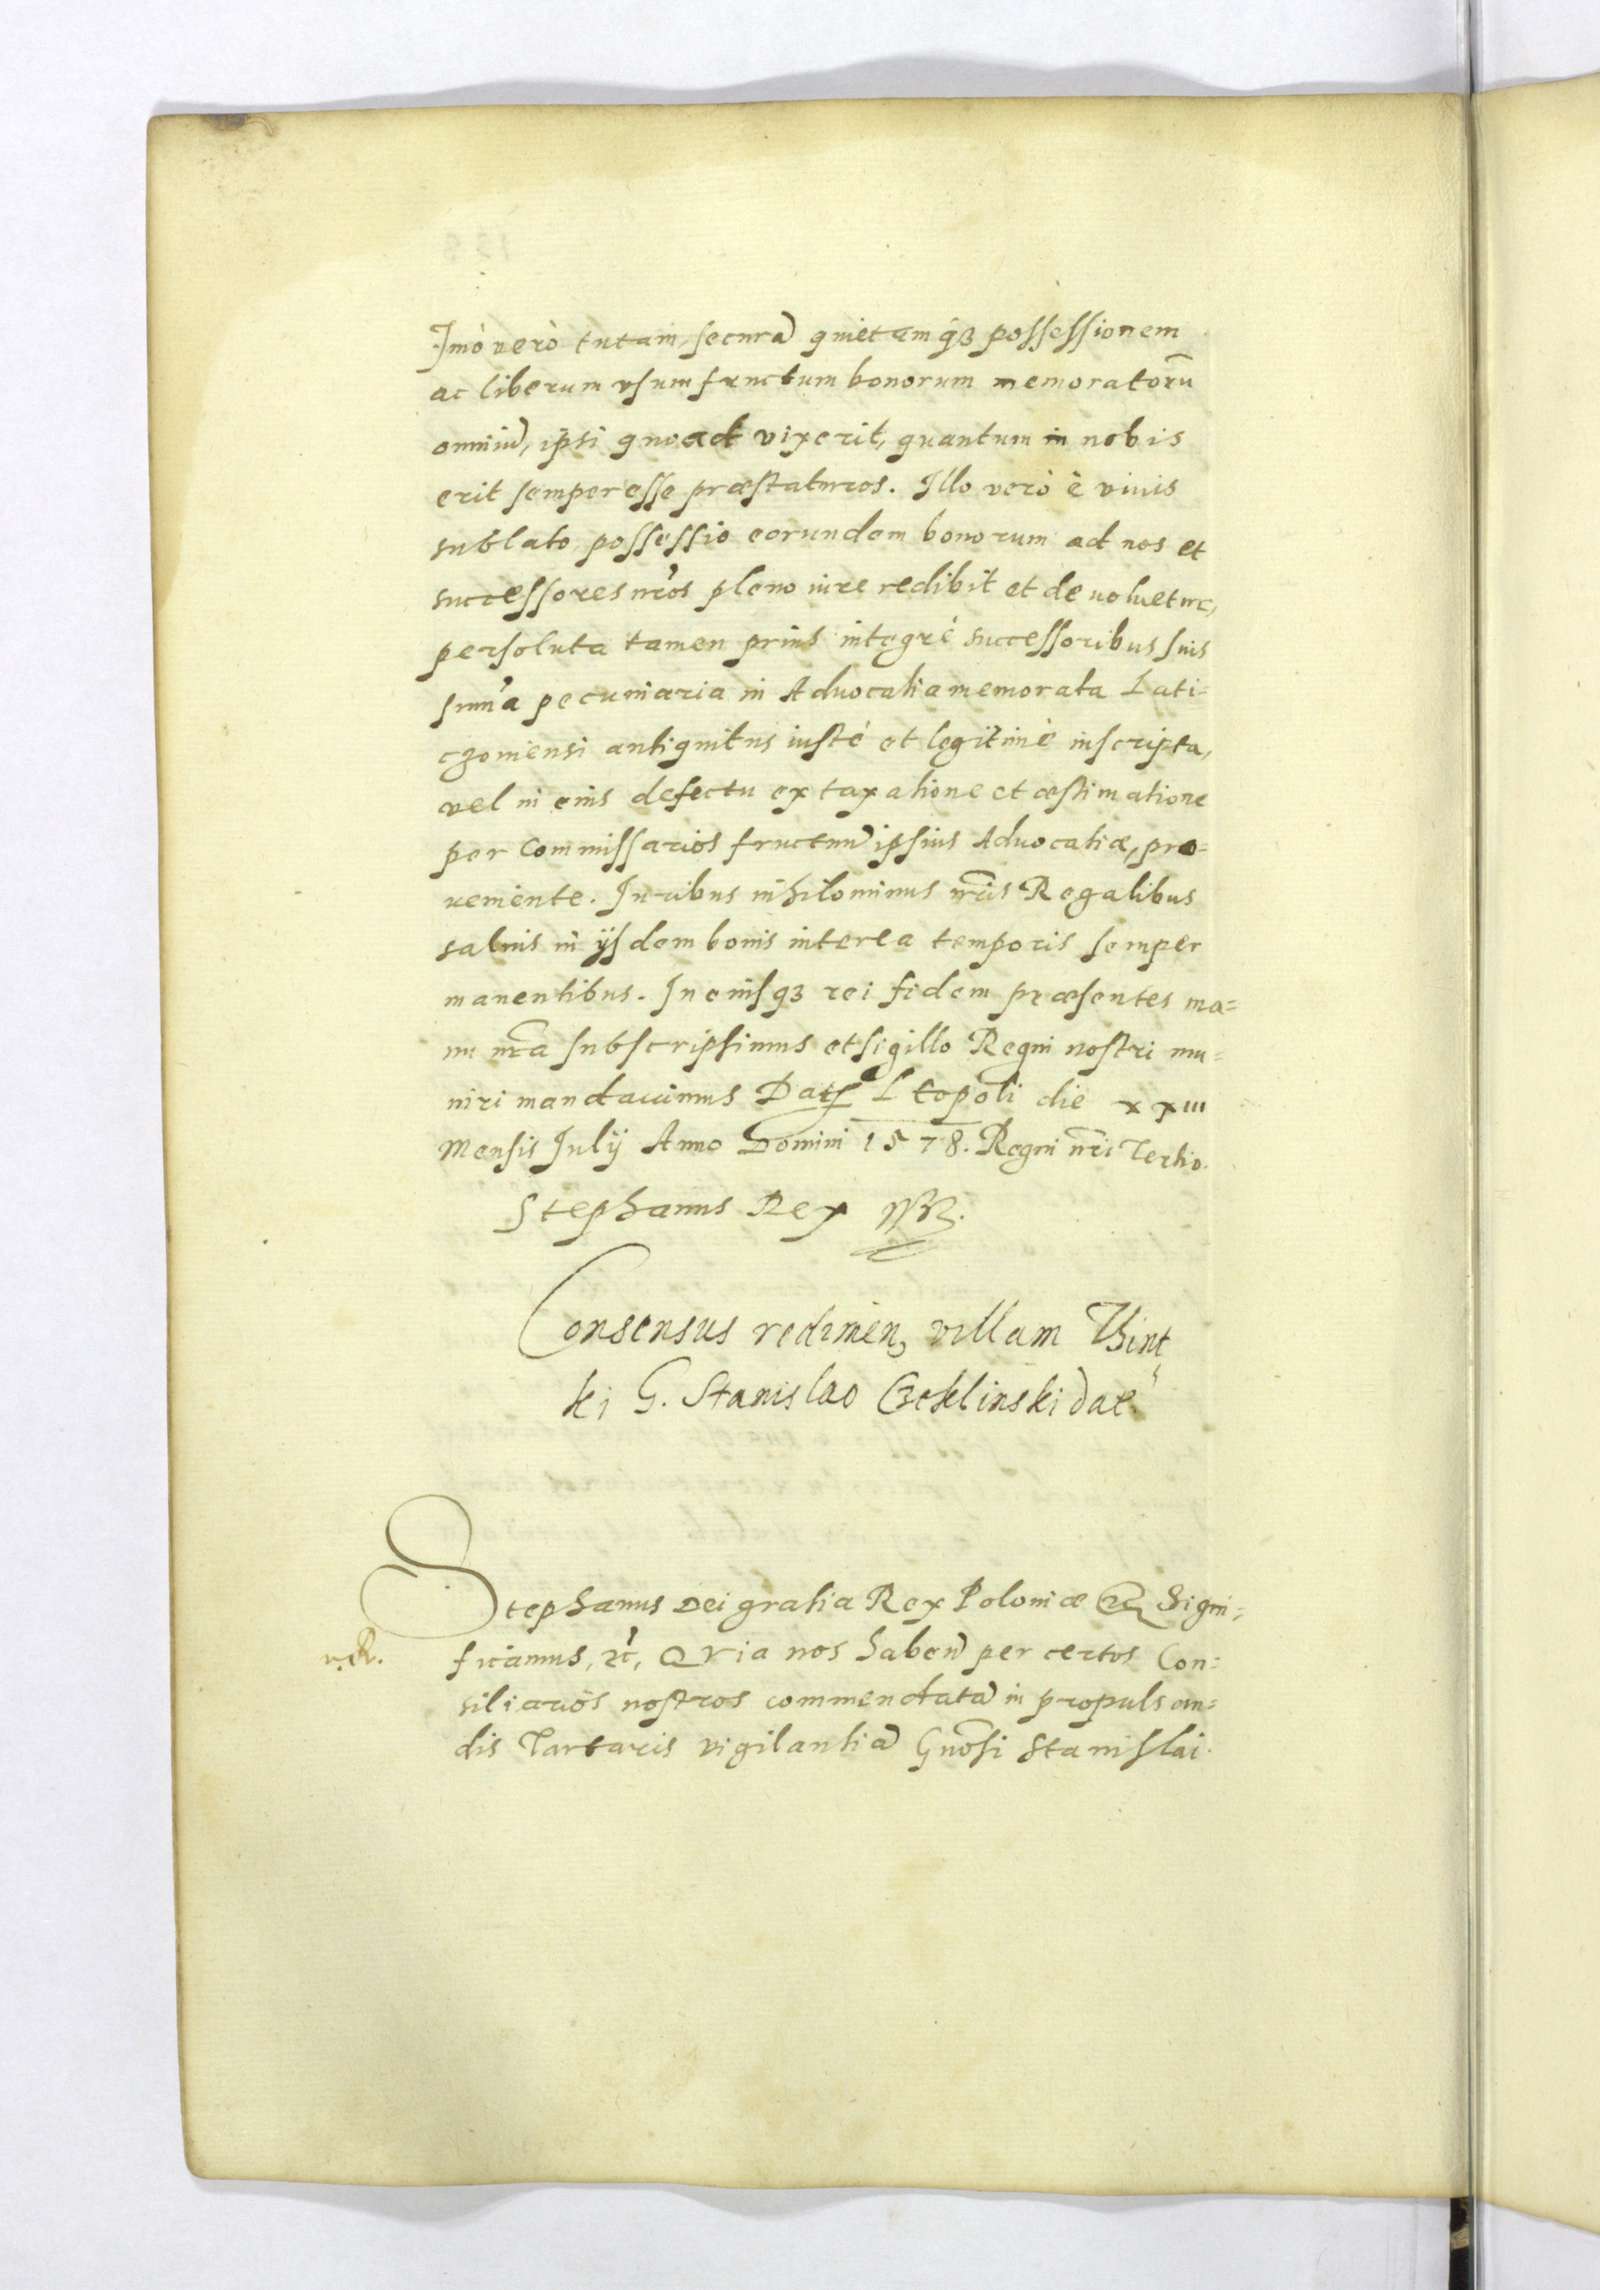 Imò verò tutam, securã quietamqȝ possessionem
ac liberum vsumfructum bonorum memoratorũ
omniũ, ipsi quoad vixerit, quantum in nobis
erit semper esse præstaturos. Illo verò è viuis
sublato possessio eorundem bonorum ad nos et
successores nr̃os pleno iure redibit et deuoluetur,
persoluta tamen prius integrè successoribus suis
sum̃a pecuniaria in Aduocatia memorata Lati=
czouiensi antiquitus iustè et legitimè inscripta,
vel in eius defectu ex taxatione et æstimatione
per Commissarios fructuũ ipsius Aduocatiæ, pro=
ueniente. Iuribus nihilominus nr̃is Regalibus
saluis in ijsdem bonis interea temporis semper
manentibus. In eiusqȝ rei fidem præsentes ma=
nu nr̃a subscripsimus et sigillo Regni nostri mu=
niri mandauimus Dat Leopoli die xxiii
Mensis Julij Anno Domini 1578. Regni nr̃i Tertio.
Stephanus Rex
Consensus redimen villam
ki G. Stanislao Czeklinski dat̃
Stephanus Dei gratia Rex Poloniæ Signi=
v. R. ficamus, etc̃, QVia nos haben per certos Con=
siliarios nostros commendatã in propulsan=
dis Tartaris vigilantiã Gñosi Stanislai